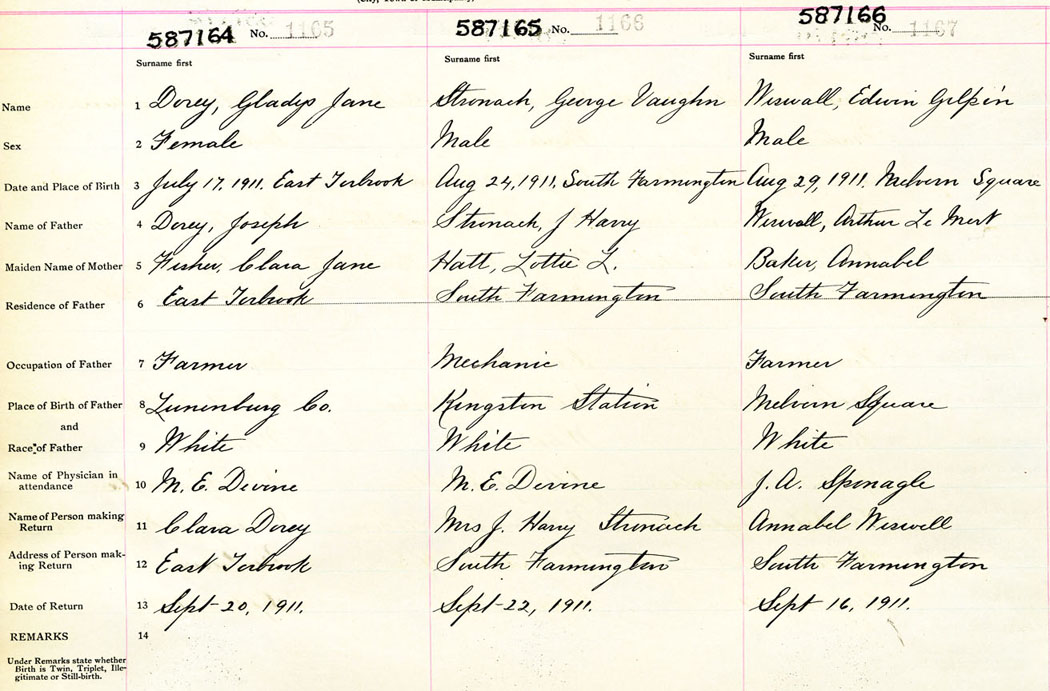 587164 No. 1165 587165 No. 1166 587166 No. 1167
Surname first Surname first Surname first
Name 1 Dorey, Gladys Jane Stronach, George Vaughn Wiswall, Edwin Gilpin
Sex 2 Female Male Male
Date and Place of Birth 3 July 17, 1911. East Torbrook Aug 24, 1911, South Farmington Aug 29, 1911. Melvern Square
Name of Father 4 Dorey, Joseph Stronach, J Harry Wiswall, Arthur Le Mert
Maiden Name of Mother 5 Fisher, Clara Jane Hatt, Lottie L. Baker, Annabel
Residence of Father 6 East Torbrook South Farmington South Farmington
Occupation of Father 7 Farmer Mechanic Farmer
Place of Birth of Father 8 Lunenburg Co. Kingston Station Melvern Square
and
Race of Father 9 White White White
Name of Physician in
attendance 10 M. E. Divine M. E. Divine J. A. Sponagle
Name of Person making
Return 11 Clara Dorey Mrs J. Harry Stronach Annabel Wiswall
Address of Person mak-
ing Return 12 East Torbrook South Farmington South Farmington
Date of Return 13 Sept 20, 1911. Sept 22, 1911. Sept 16, 1911.
REMARKS 14
Under Remarks state whether
Birth is Twin, Triplet, Ille-
gitimate or Still-birth.